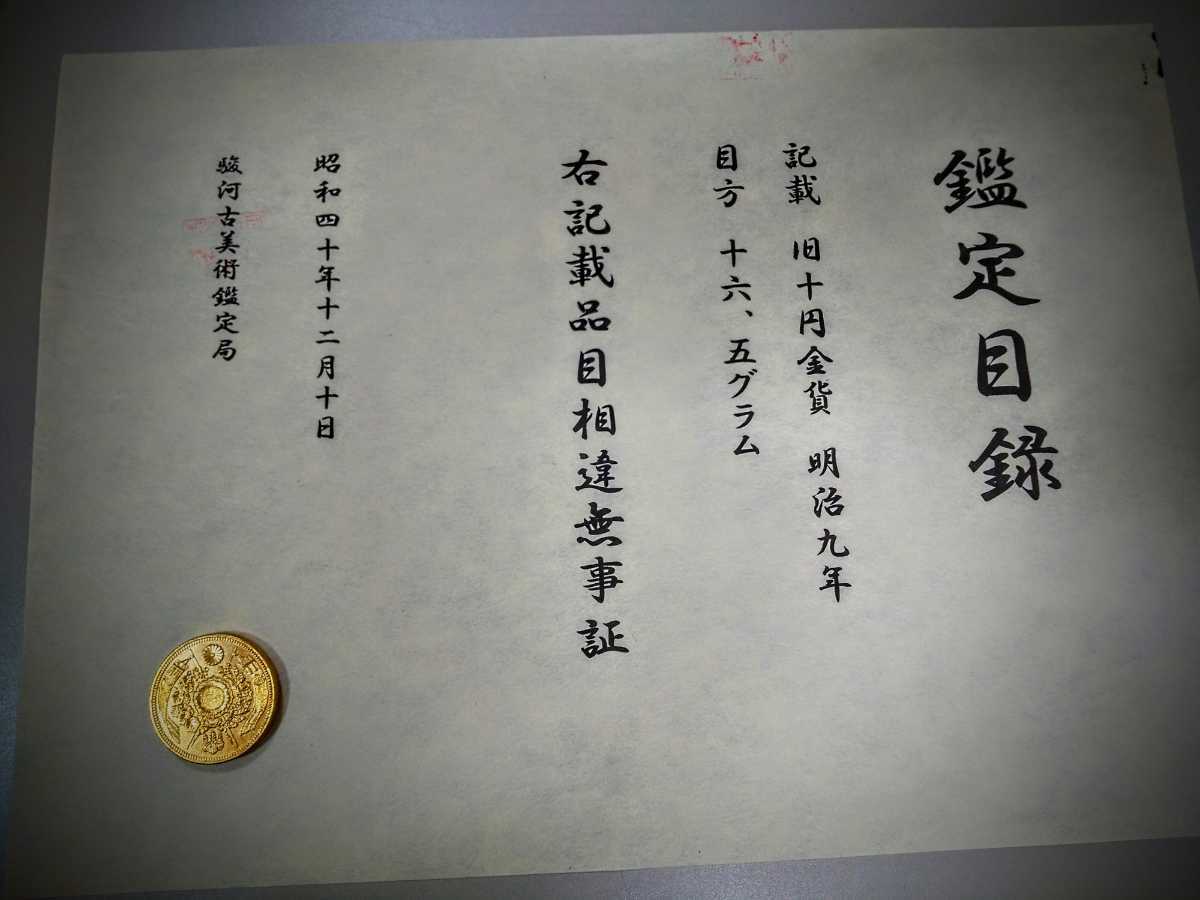 鑑定目録
記載 旧十円金貨 明治九年
目方 十六、五グラム
右記載品目相違無事証
昭和四十年十二月十日
駿河古美術鑑定局